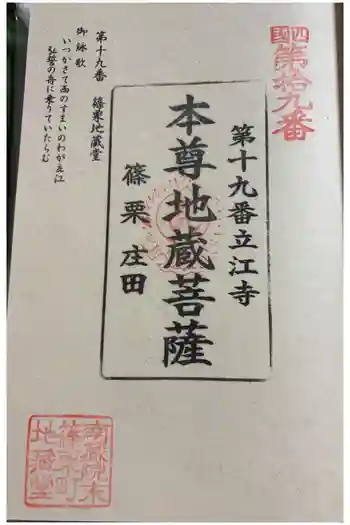 四国第拾九番
第十九番立江寺
本尊地蔵菩薩
篠栗庄田
第十九番 篠栗地蔵堂
御詠歌
いつかさて西のすまいのわが立江
弘誓の舟に乗りていたらむ
南蔵院末
篠栗町
地蔵堂